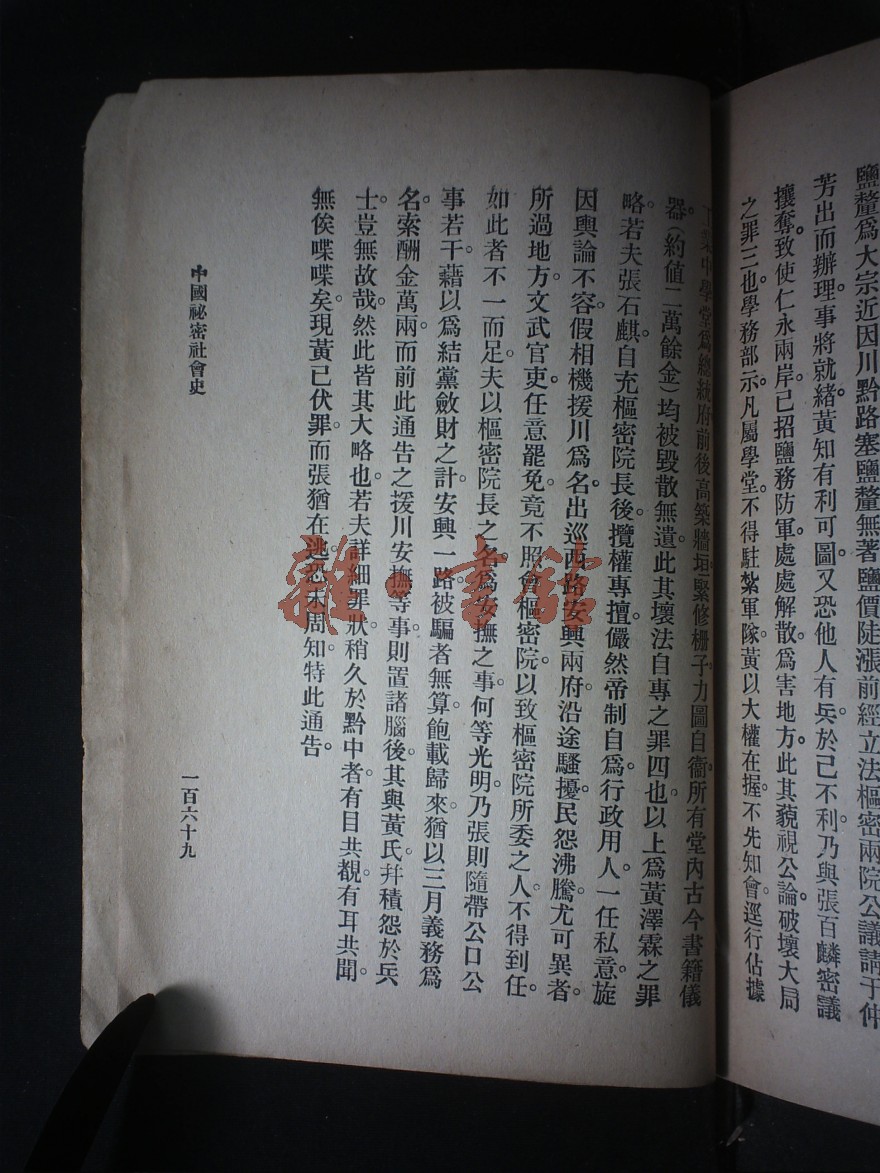 鹽釐爲大宗近因川黔路塞鹽釐無著鹽價陡漲前經立法樞密兩院公議請于仲
芳出而辦理事將就緒黃知有利可圖又恐他人有兵於己不利乃與張百麟密議
攘奪致使仁永兩岸已招鹽務防軍處處解散爲害地方此其藐視公論破壞大局
之罪三也學務部示凡屬學堂不得駐紮軍隊黃以大權在握不先知會逕行佔據
業中學堂爲總統府前後高築牆垣緊修柵子力圖自衞所有堂內古今書籍儀
器(約值二萬餘金)均被毀散無遺此其壞法自專之罪四也以上爲黃澤霖之罪
略若夫張石麒自充樞密院長後攬權專擅儼然帝制自爲行政用人一任私意旋
因輿論不容假相機援川爲名出巡西路安興兩府沿途騷擾民怨沸騰尤可異者
所過地方文武官吏任意罷免竟不照會樞密院以致樞密院所委之人不得到任
如此者不一而足夫以樞密院長之名爲安撫之事何等光明乃張則隨帶公口公
事若干藉以爲結黨斂財之計安興一路被騙者無算飽載歸來猶以三月義務爲
名索酬金萬兩而前此通告之援川安撫等事則置諸腦後其與黃氏幷積怨於兵
士豈無故哉然此皆其大略也若夫詳細罪狀稍久於黔中者有目共覩有耳共聞
無俟喋喋矣現黃已伏罪而張猶在逃恐未周知特此通告
中國祕密社會史
一百六十九
雜·書館